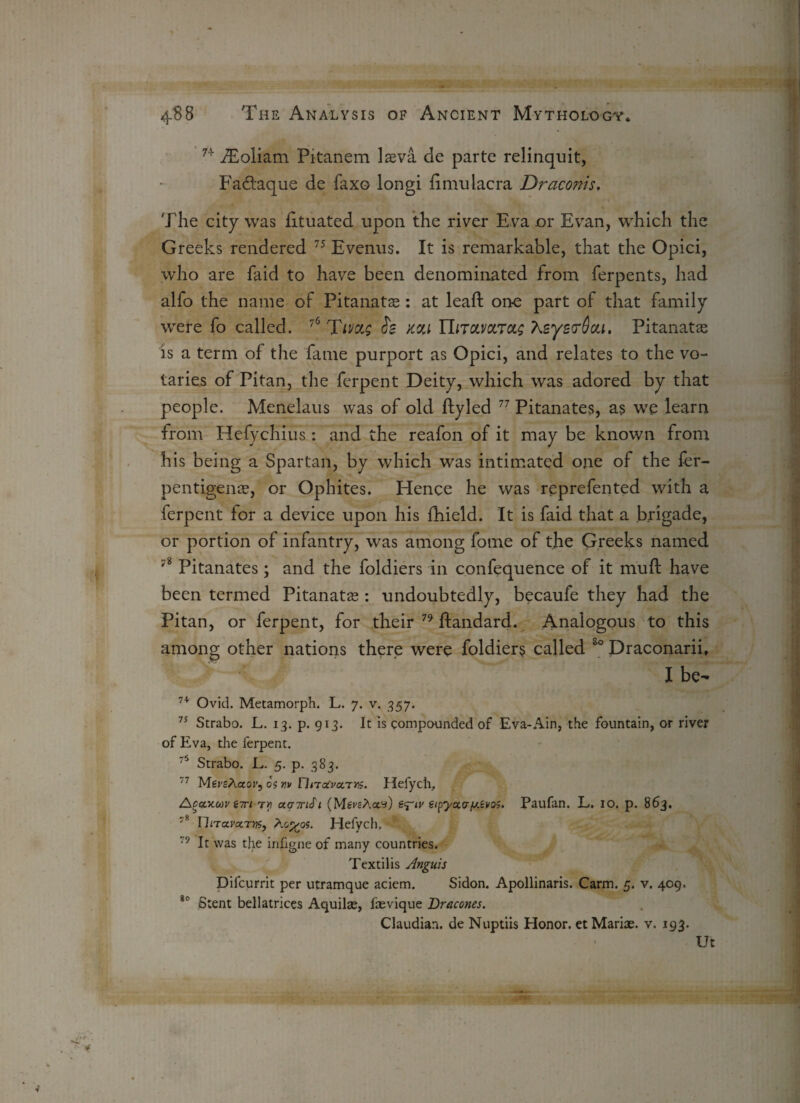 488 The Analysis of Ancient Mythology.
⁷⁴ Æoliam Pitanem lævâ de parte relinquit,
Factaque de ſaxo longi ſimulacra Draconis.
The city was ſituated upon the river Eva or Evan, which the
Greeks rendered ⁷⁵ Evenus. It is remarkable, that the Opici,
who are ſaid to have been denominated from ſerpents, had
alſo the name of Pitanatæ: at leaſt one part of that family
were ſo called. ⁷⁶ Τινας δε και Πιτανατας λεγεσθαι. Pitanatæ
is a term of the ſame purport as Opici, and relates to the vo-
taries of Pitan, the ſerpent Deity, which was adored by that
people. Menelaus was of old ſtyled ⁷⁷ Pitanates, as we learn
from Heſychius: and the reaſon of it may be known from
his being a Spartan, by which was intimated one of the ſer-
pentigenæ, or Ophites. Hence he was repreſented with a
ſerpent for a device upon his ſhield. It is ſaid that a brigade,
or portion of infantry, was among ſome of the Greeks named
⁷⁸ Pitanates; and the ſoldiers in conſequence of it muſt have
been termed Pitanatæ: undoubtedly, becauſe they had the
Pitan, or ſerpent, for their ⁷⁹ ſtandard. Analogous to this
among other nations there were ſoldiers called ⁸⁰ Draconarii.
I be-
⁷⁴ Ovid. Metamorph. L. 7. v. 357.
⁷⁵ Strabo. L. 13. p. 913. It is compounded of Eva-Ain, the fountain, or river
of Eva, the ſerpent.
⁷⁶ Strabo. L. 5. p. 383.
⁷⁷ Μενελαον, ὁς ην Πιτανατης. Heſych.
Δρακων επι τῃ ασπιδι (Μενελαȣ) εϛιν ειργασμενος. Pauſan. L. 10. p. 863.
⁷⁸ Πιτανατης, λοχος. Heſych.
⁷⁹ It was the inſigne of many countries.
Textilis Anguis
Diſcurrit per utramque aciem. Sidon. Apollinaris. Carm. 5. v. 409.
⁸⁰ Stent bellatrices Aquilæ, ſævique Dracones.
Claudian. de Nuptiis Honor. et Mariæ. v. 193.
Ut